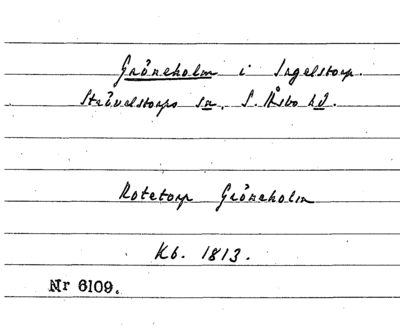 Gröneholm i Ingelstorp.
Strövelstorps sn, S. Åsbo hd.
Rotetorp Gröneholm
Kb. 1813.
Nr 6109.